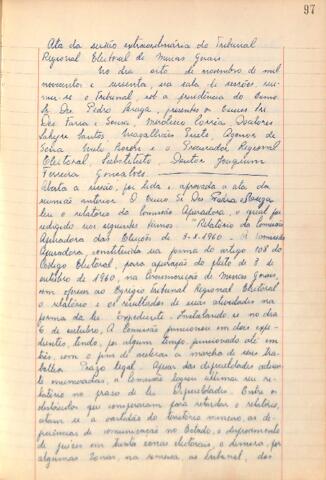 97
Ata da sessão extraordinária do Tribunal
Regional Eleitoral de Minas Gerais
No dia oito de novembro de mil
novecentos e sessenta, na sala de sessões, reu-
niu-se o Tribunal sob a presidência do Exmo.
Sr. Des. Pedro Braga, presentes os Exmos. Srs.
Des. Faria e Souza, Corrêa, Doutores
Santos, Magalhães Pinto, Agenor de
Sena e o Procurador Regional
Eleitoral, Substituto, Doutor Joaquim
Ferreira Gonçalves.
Aberta a sessão, foi lida e aprovada a ata da
reunião anterior. O Exmo. Sr. Des. Pedro Braga
leu o relatório da Comissão Apuradora, o qual foi
redigido nos seguintes termos: Relatório da Comissão
Apuradora das Eleições de 3-1-1960 - A Comissão
Apuradora, constituída na forma do artigo 108 do
Código Eleitoral, para apuração do pleito de 3 de
outubro de 1960, na Circunscrição de Minas Gerais,
vem oferecer ao Egrégio Tribunal Regional Eleitoral
o relatório e os resultados de suas atividades na
forma da lei. Expediente - Instalando-se no dia
6 de outubro, A Comissão funcionou em dois expedi-
entes, tendo, por algum tempo funcionado até em
três, com o fim de acelerar a marcha de seus tra-
balhos. Prazo legal. Apesar das dificuldades adian-
te enumeradas, a Comissão logrou ultimar seu re-
latório no prazo de lei. Dificuldades. Entre os
obstáculos que conspiraram para retardar o relatório,
estão a vastidão do território mineiro, as de-
ficiências de comunicação no Estado, o provimento
de juízes em trinta zonas eleitorais, a demora, por
algumas zonas, na remessa, ao tribunal, dos